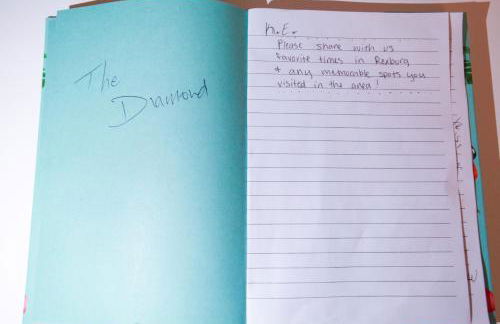 The
Diamond
Please share with us
favorite times in Rexburg
& any memorable spots you
visited in the area